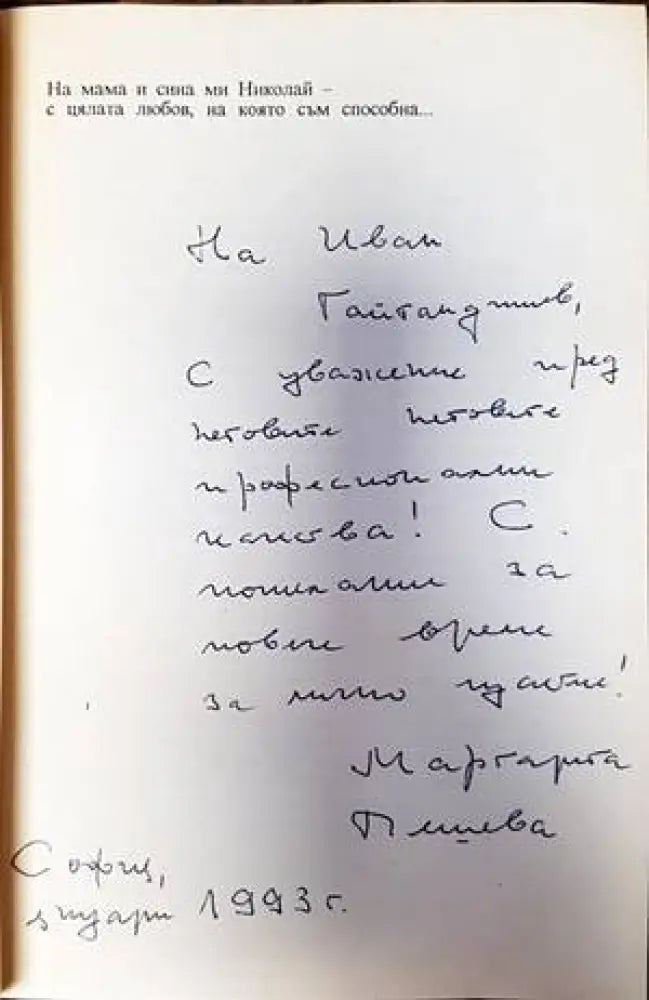 На мама и сина ми Николай –
с цялата любов, на която съм способна...
На Иван
Гайтанджиев,
С уважение пред
неговите човешките
професионални
качества! С
пожелание за
повече време
за лично щастие!
Маргарита
Пешева
София,
януари 1993 г.